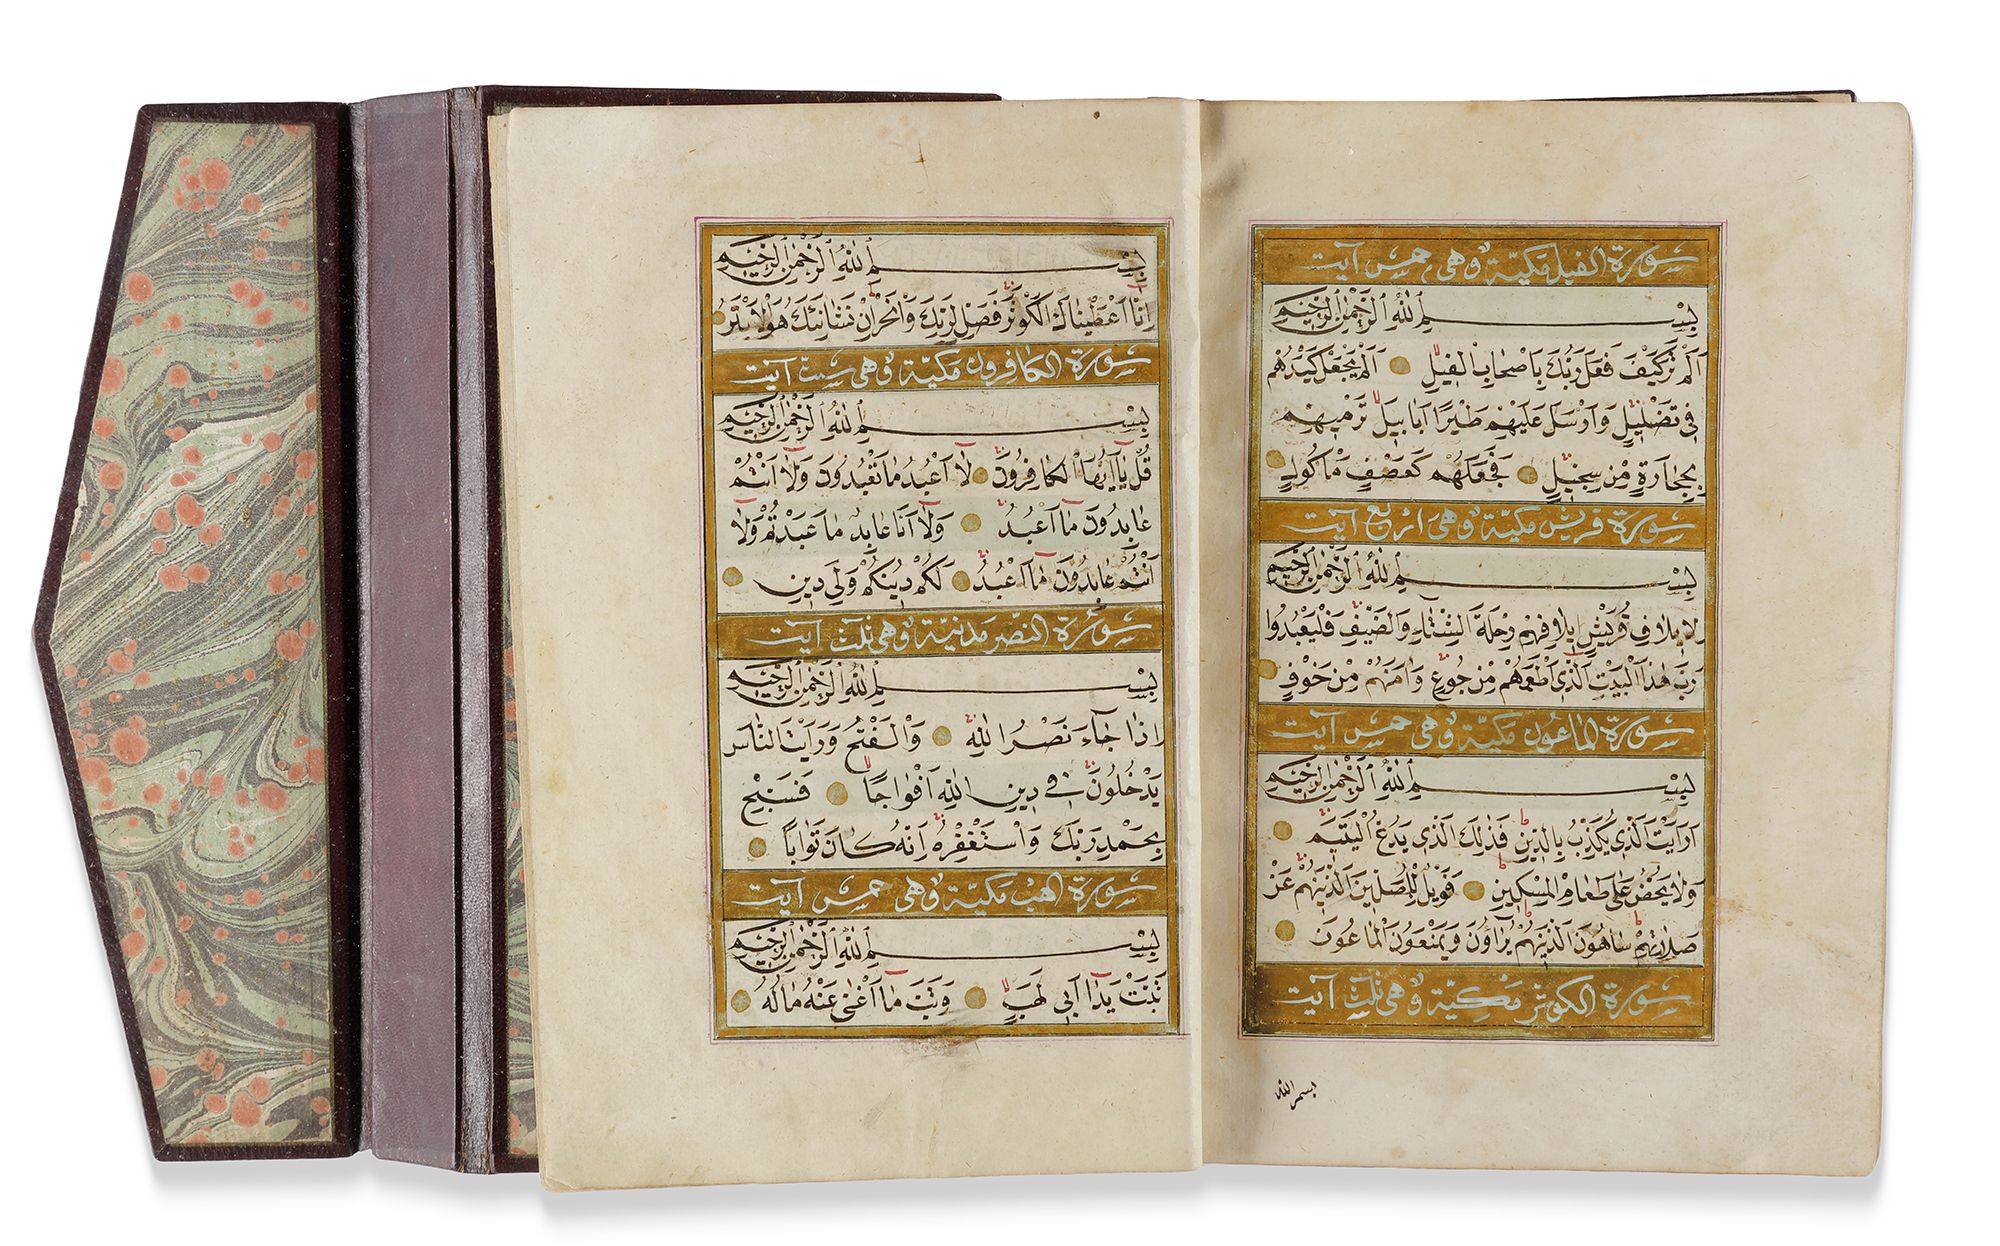 سورة الفيل مكية وهى خمس آيت
بِسْمِ اللّٰهِ الرَّحْمٰنِ الرَّحِيمِ
اَلَمْ تَرَ كَيْفَ فَعَلَ رَبُّكَ بِاَصْحَابِ الْفِيلِ اَلَمْ يَجْعَلْ كَيْدَهُمْ
فِى تَضْلِيلٍ وَاَرْسَلَ عَلَيْهِمْ طَيْرًا اَبَابِيلَ تَرْمِيهِمْ
بِحِجَارَةٍ مِنْ سِجِّيلٍ فَجَعَلَهُمْ كَعَصْفٍ مَاْكُولٍ
سورة قريش مكية وهى اربع آيت
بِسْمِ اللّٰهِ الرَّحْمٰنِ الرَّحِيمِ
لِاِيلَافِ قُرَيْشٍ اِيلَافِهِمْ رِحْلَةَ الشِّتَاءِ وَالصَّيْفِ فَلْيَعْبُدُوا
رَبَّ هٰذَا الْبَيْتِ الَّذِى اَطْعَمَهُمْ مِنْ جُوعٍ وَاٰمَنَهُمْ مِنْ خَوْفٍ
سورة الماعون مكية وهى خمس آيت
بِسْمِ اللّٰهِ الرَّحْمٰنِ الرَّحِيمِ
اَرَاَيْتَ الَّذِى يُكَذِّبُ بِالدِّينِ فَذٰلِكَ الَّذِى يَدُعُّ الْيَتِيمَ
وَلَا يَحُضُّ عَلٰى طَعَامِ الْمِسْكِينِ فَوَيْلٌ لِلْمُصَلِّينَ الَّذِينَ هُمْ عَنْ
صَلَاتِهِمْ سَاهُونَ الَّذِينَ هُمْ يُرَاؤُنَ وَيَمْنَعُونَ الْمَاعُونَ
سورة الكوثر مكية وهى ثلث آيت
بسم الله
بِسْمِ اللّٰهِ الرَّحْمٰنِ الرَّحِيمِ
اِنَّا اَعْطَيْنَاكَ الْكَوْثَرَ فَصَلِّ لِرَبِّكَ وَانْحَرْ اِنَّ شَانِئَكَ هُوَ الْاَبْتَرُ
سورة الكافرون مكية وهى ست آيت
بِسْمِ اللّٰهِ الرَّحْمٰنِ الرَّحِيمِ
قُلْ يَا اَيُّهَا الْكَافِرُونَ لَا اَعْبُدُ مَا تَعْبُدُونَ وَلَا اَنْتُمْ
عَابِدُونَ مَا اَعْبُدُ وَلَا اَنَا عَابِدٌ مَا عَبَدْتُمْ وَلَا
اَنْتُمْ عَابِدُونَ مَا اَعْبُدُ لَكُمْ دِينُكُمْ وَلِىَ دِينِ
سورة النصر مدنية وهى ثلث آيت
بِسْمِ اللّٰهِ الرَّحْمٰنِ الرَّحِيمِ
اِذَا جَآءَ نَصْرُ اللّٰهِ وَالْفَتْحُ وَرَاَيْتَ النَّاسَ
يَدْخُلُونَ فِى دِينِ اللّٰهِ اَفْوَاجًا فَسَبِّحْ
بِحَمْدِ رَبِّكَ وَاسْتَغْفِرْهُ اِنَّهُ كَانَ تَوَّابًا
سورة لهب مكية وهى خمس آيت
بِسْمِ اللّٰهِ الرَّحْمٰنِ الرَّحِيمِ
تَبَّتْ يَدَا اَبِى لَهَبٍ وَتَبَّ مَا اَغْنٰى عَنْهُ مَالُهُ